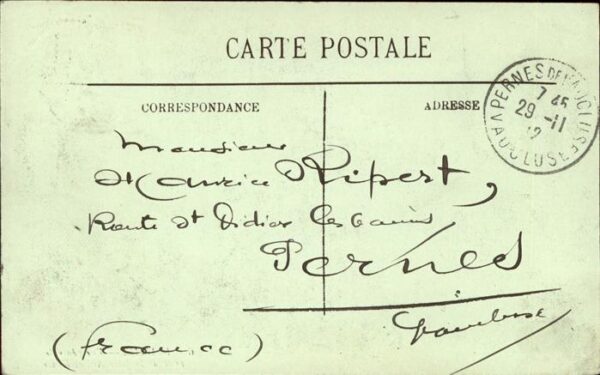 CARTE POSTALE
CORRESPONDANCE
ADRESSE
PERNES DE VAUCLUSE
7 45
29 -11
12
VAUCLUSE
Monsieur
Maurice Ripert,
Route St Didier les bains
Pernes
Vaucluse
(France)